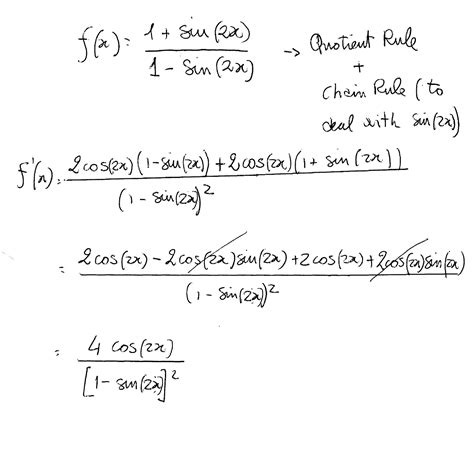 f(x) = (1 + sin(2x)) / (1 - sin(2x)) → Quotient Rule
+
Chain Rule (to
deal with sin(2x))
f'(x) = (2cos(2x)(1-sin(2x)) + 2cos(2x)(1 + sin(2x))) / (1 - sin(2x))²
= (2cos(2x) - 2cos(2x)sin(2x) + 2cos(2x) + 2cos(2x)sin(2x)) / (1 - sin(2x))²
= 4 cos(2x) / [1 - sin(2x)]²